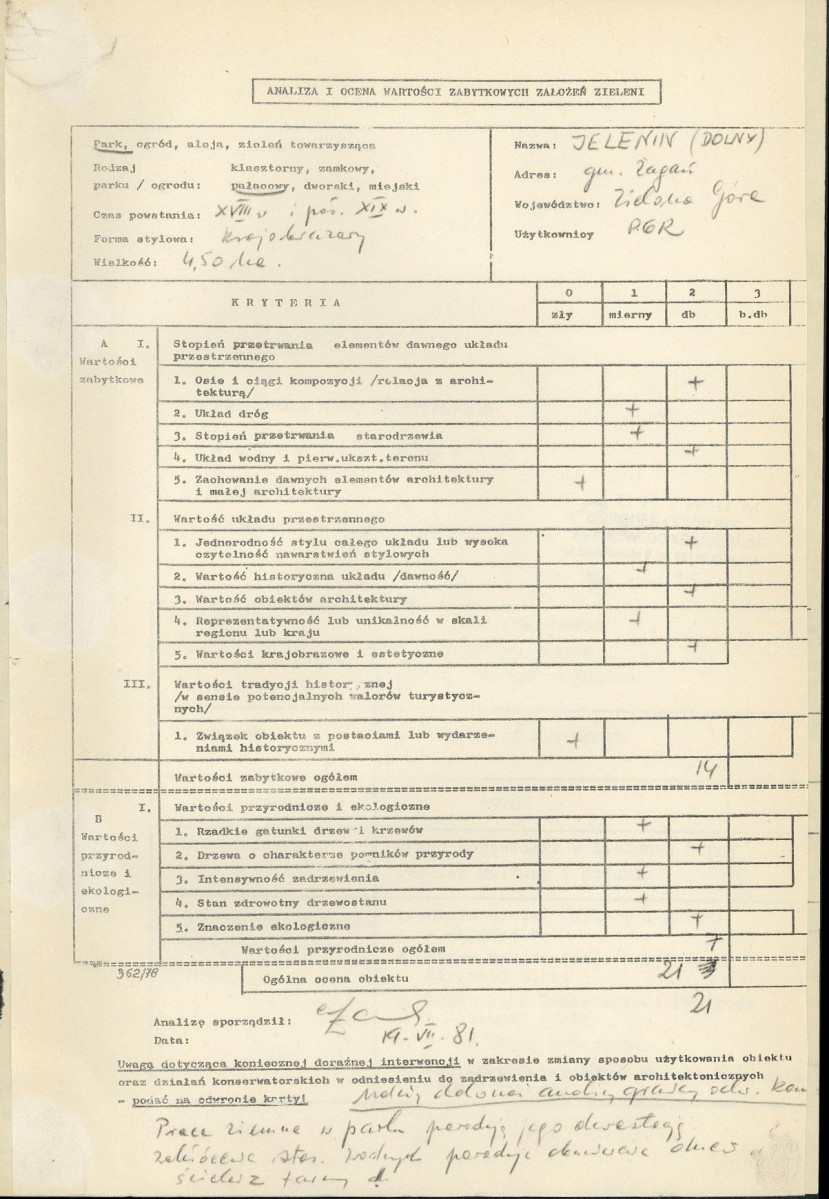 ANALIZA I OCENA WARTOŚCI ZABYTKOWYCH ZAŁOŻEŃ ZIELENI
Park, ogród, aleja, zieleń towarzysząca
Rodzaj klasztorny, zamkowy,
parku / ogrodu: pałacowy, dworski, miejski
Czas powstania: XVIII w i poł. XIX w.
Forma stylowa: krajobrazowy
Wielkość: 4,50 ha.
Nazwa: JELENIN (DOLNY)
Adres: gm. Żagań
Województwo: Zielona Góra
Użytkownicy PGR
KRYTERIA
0 1 2 3
zły mierny db b.db
A I. Stopień przetrwania elementów dawnego układu
Wartości przestrzennego
zabytkowe
1. Osie i ciągi kompozycji /relacja z archi-
tekturą/ +
2. Układ dróg +
3. Stopień przetrwania starodrzewia +
4. Układ wodny i pierw.ukszt.terenu +
5. Zachowanie dawnych elementów architektury
i małej architektury +
II. Wartość układu przestrzennego
1. Jednorodność stylu całego układu lub wysoka
czytelność nawarstwień stylowych +
2. Wartość historyczna układu /dawność/ +
3. Wartość obiektów architektury +
4. Reprezentatywność lub unikalność w skali
regionu lub kraju +
5. Wartości krajobrazowe i estetyczne +
III. Wartości tradycji histor znej
/w sensie potencjalnych walorów turystycz-
nych/
1. Związek obiektu z postaciami lub wydarze-
niami historycznymi +
Wartości zabytkowe ogółem 14
B I. Wartości przyrodnicze i ekologiczne
Wartości
przyrod-
nicze i
ekologi-
czne
1. Rzadkie gatunki drzew i krzewów +
2. Drzewa o charakterze pomników przyrody +
3. Intensywność zadrzewienia +
4. Stan zdrowotny drzewostanu +
5. Znaczenie ekologiczne +
Wartości przyrodnicze ogółem 7
362/78
Ogólna ocena obiektu 21
21
Analizę sporządził:
Data: 19. VII. 81.
Uwaga dotycząca koniecznej doraźnej interwencji w zakresie zmiany sposobu użytkowania obiektu
oraz działań konserwatorskich w odniesieniu do zadrzewienia i obiektów architektonicznych
- podać na odwrocie karty!
Prace ziemne w parku powodują jego